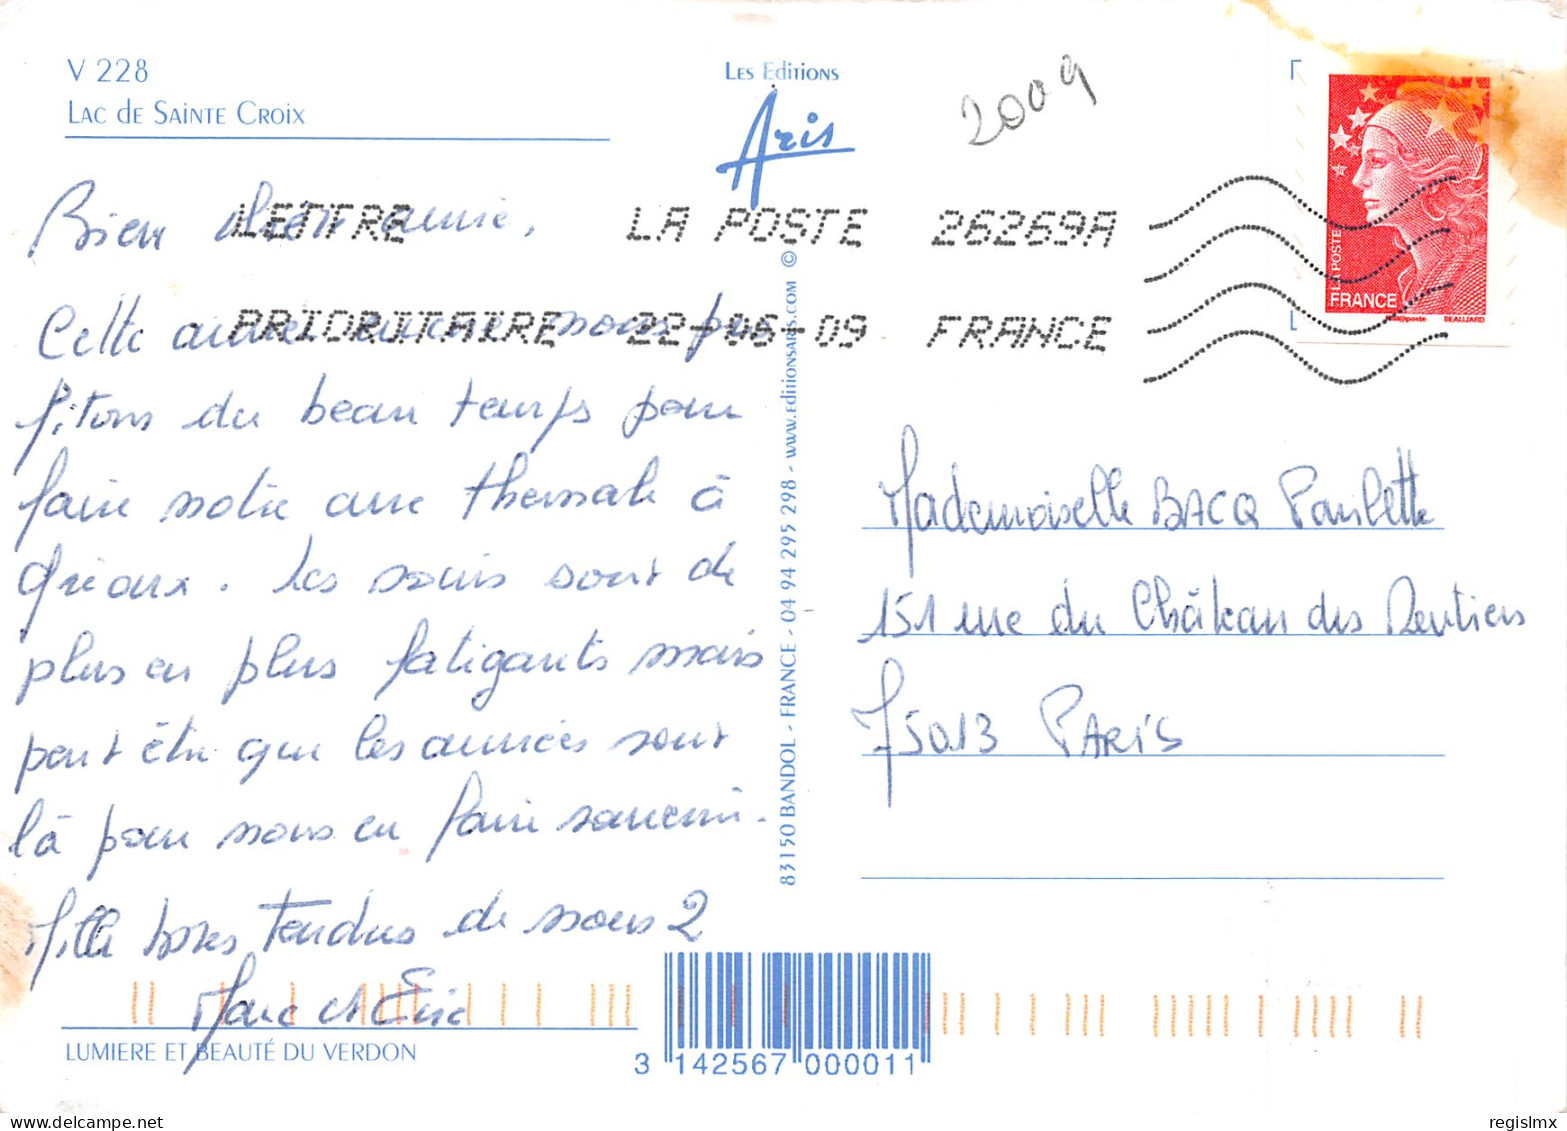 V 228
Lac de Sainte Croix
Les Editions
Aris
2009
LETTRE LA POSTE 26269A
PRIORITAIRE 22-06-09 FRANCE
LA POSTE
FRANCE
BEAUJARD
Bien chère amie,
Cette année encore nous pro
fitons du beau temps pour
faire notre cure thermale à
Gréoux. Les soins sont de
plus en plus fatigants mais
peut être que les années sont
là pour nous en faire souvenir.
Mille bises tendres de nous 2
Marc et Eric
LUMIERE ET BEAUTÉ DU VERDON
83150 BANDOL - FRANCE - 04 94 295 298 - www.editionsaris.com ©
Mademoiselle BACQ Paulette
151 rue du Château des Rentiers
75013 PARIS
3 142567 000011
regislmx